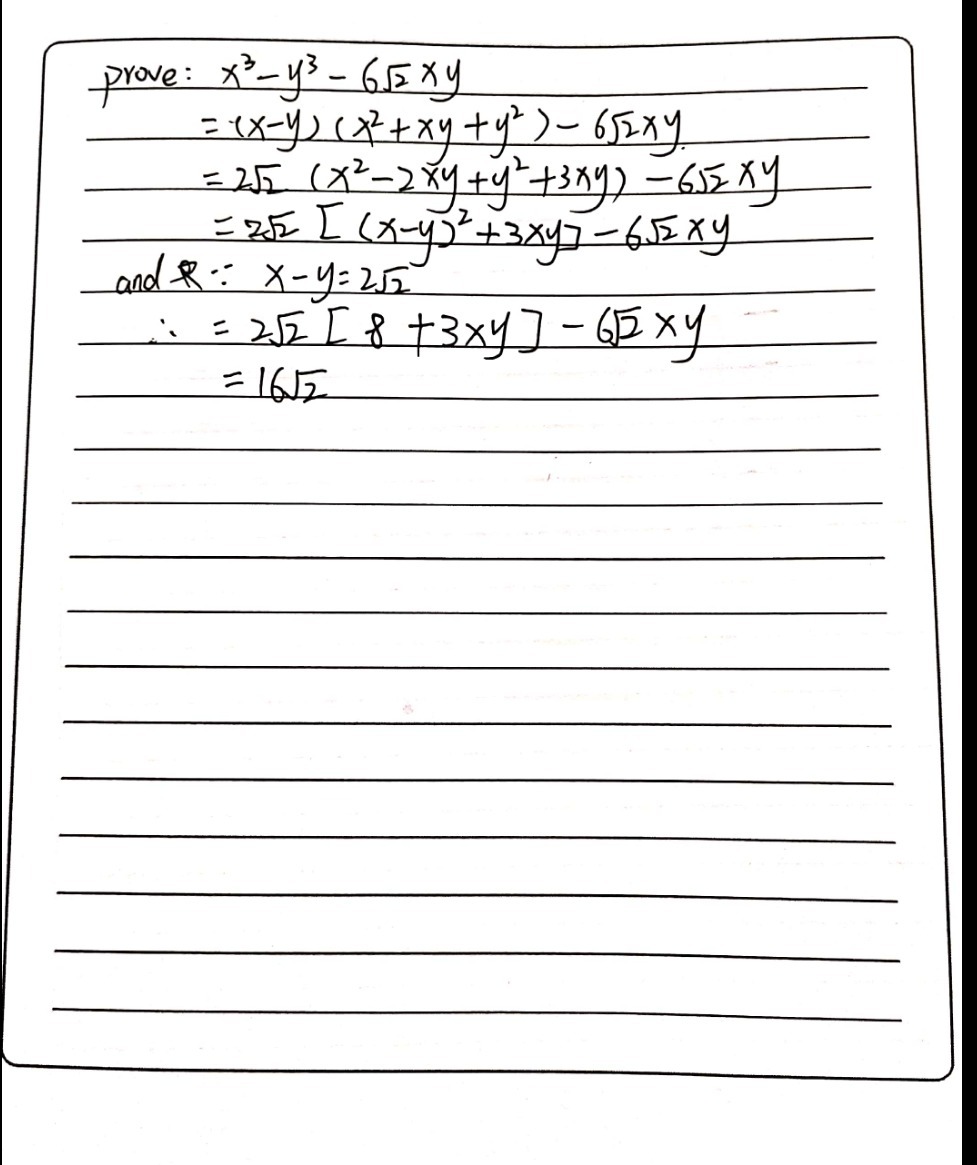 prove: x³-y³-6√2xy
=(x-y)(x²+xy+y²)-6√2xy
=2√2(x²-2xy+y²+3xy)-6√2xy
=2√2[(x-y)²+3xy]-6√2xy
and ∵ x-y=2√2
∴ =2√2[8+3xy]-6√2xy
=16√2